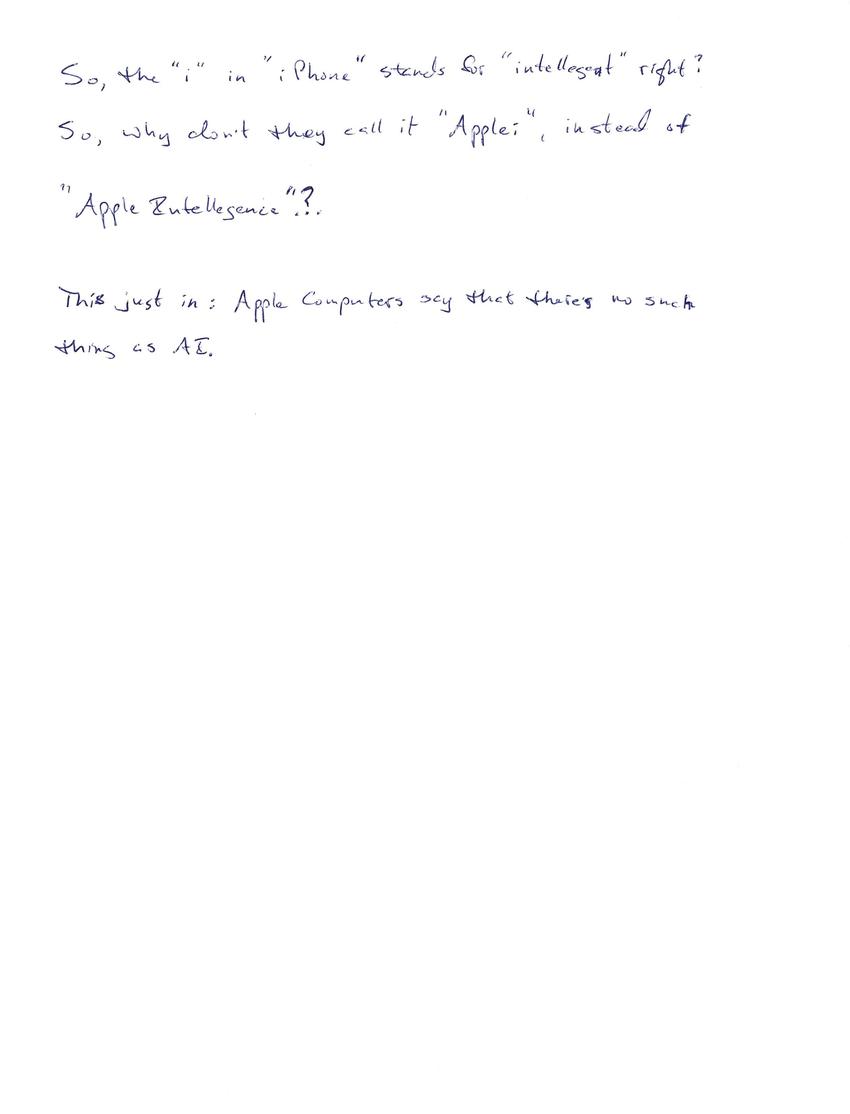 So, the "i" in "iPhone" stands for "intellegent" right?
So, why don't they call it "Applei", instead of
"Apple Intellegence"?.
This just in: Apple Computers say that there's no such
thing as AI.